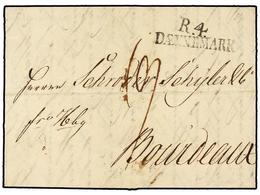 R.4.
DÆNNEMARK
Herren Schröder Schÿler & Co
fro Hbg
Bourdeaux